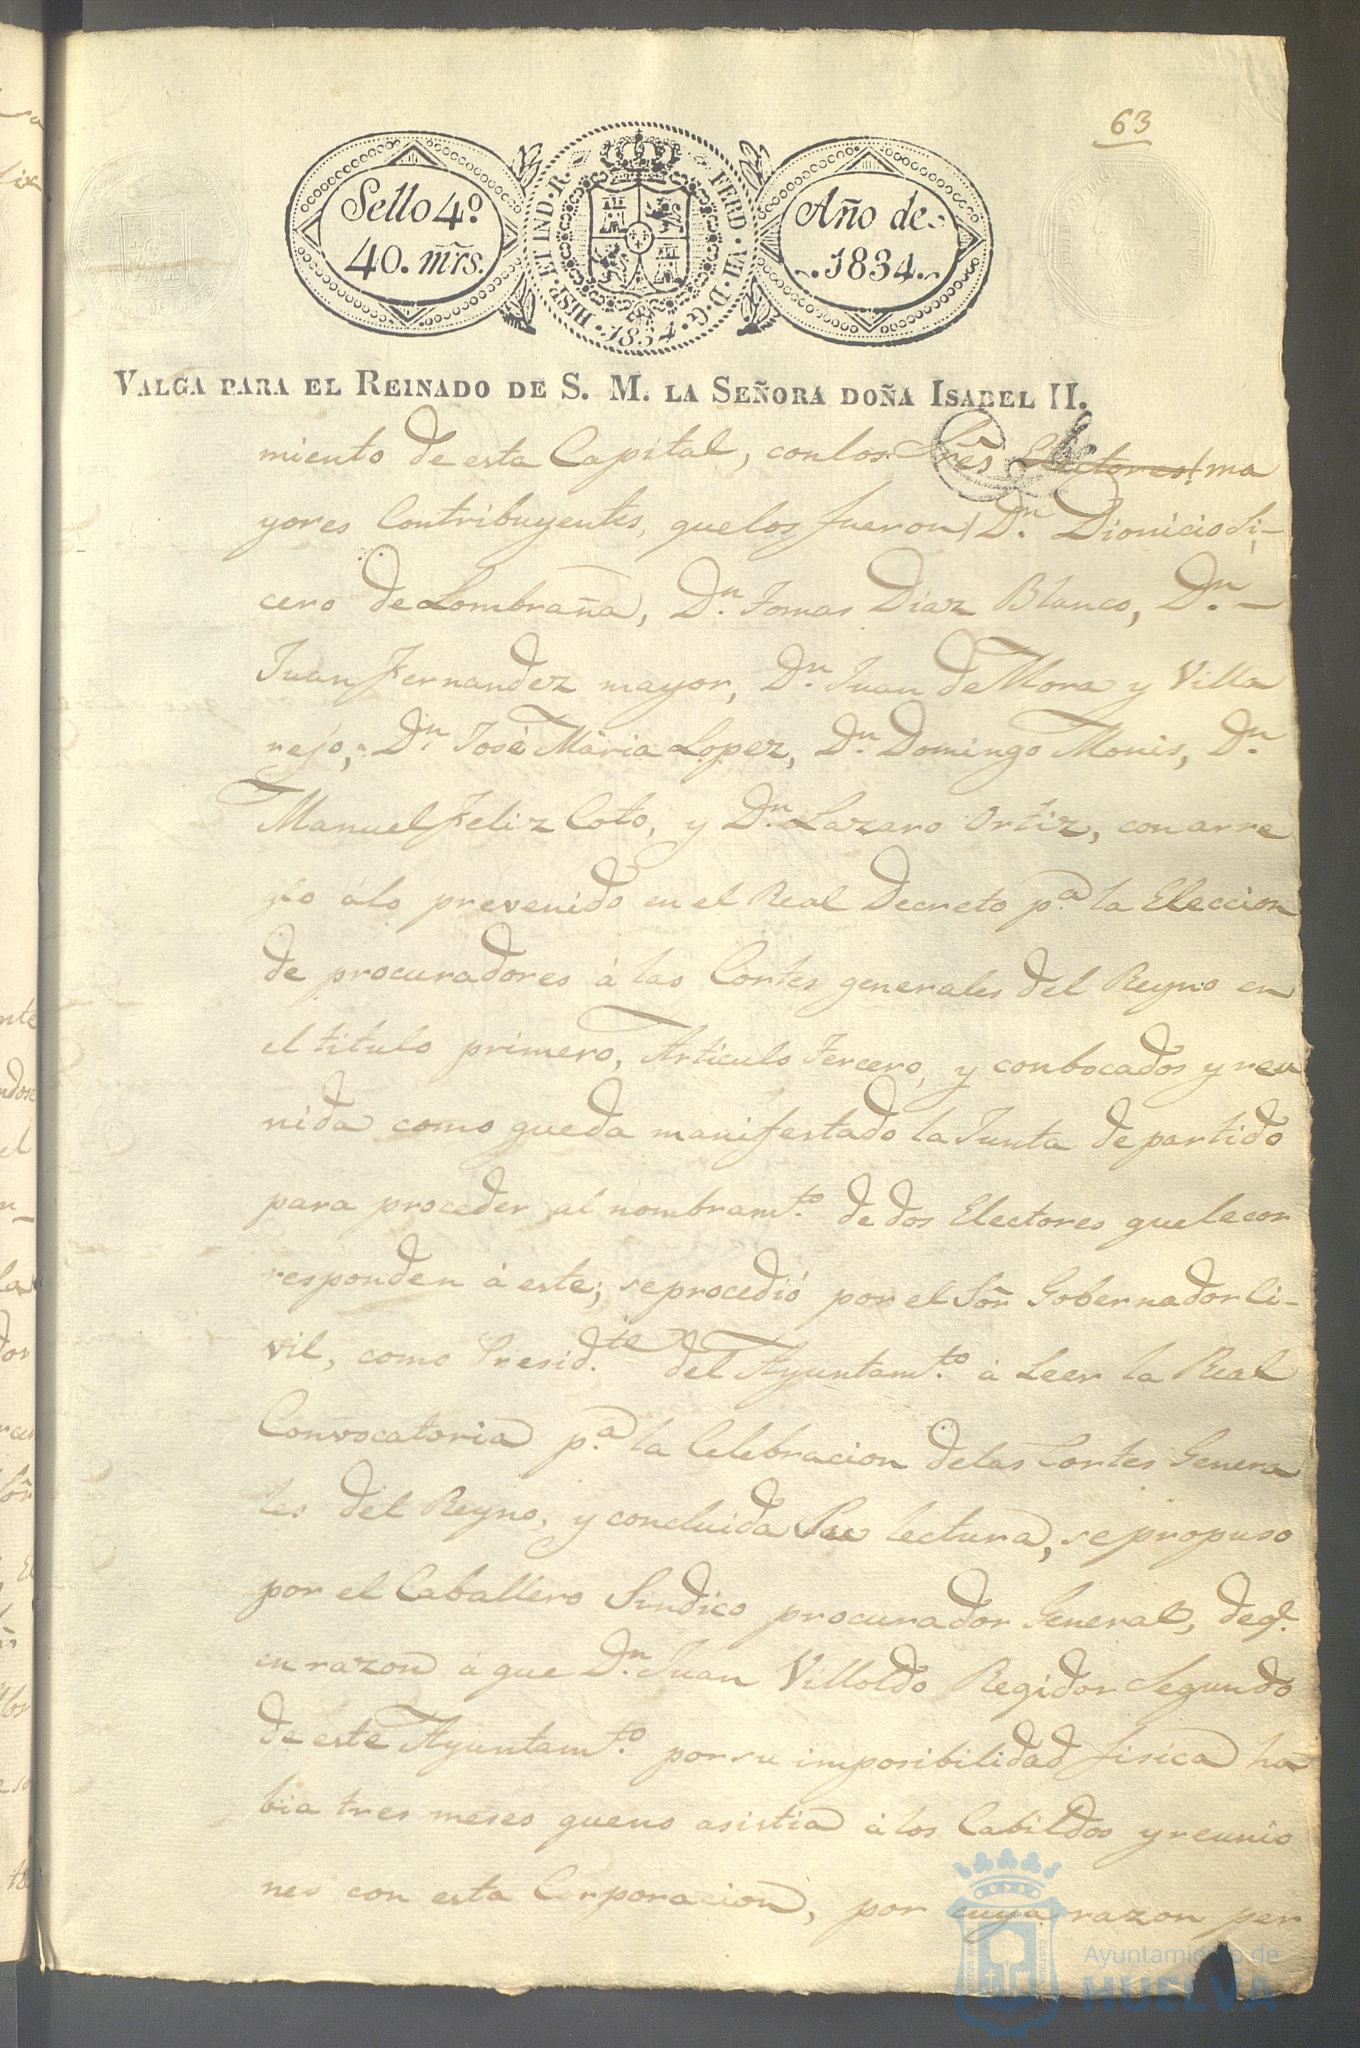 63
Sello 4º
40. mrs.
HISP. ET IND. R. FERD. VII. D. G. 1834.
Año de
1834.
VALGA PARA EL REINADO DE S. M. LA SEÑORA DOÑA ISABEL II.
miento de esta Capital, con los Sres Electores/ ma
yores Contribuyentes, que los fueron/ Dn. Dionicio Si-
cero de Lombraña, Dn. Tomas Diaz Blanco, Dn. -
Juan Fernandez mayor, Dn. Juan de Mora y Villa
rejo, Dn. José Maria Lopez, Dn. Domingo Monis, Dn
Manuel Feliz Coto, y Dn. Lazaro Ortiz, con arre
glo álo prevenido en el Real Decreto pa. la Eleccion
de procuradores á las Cortes generales del Reyno en
el titulo primero, Articulo Tercero, y conbocados y reu
nida como queda manifestado la Junta de partido
para proceder al nombramto. de dos Electores que le cor
responden á este; se procedió por el Sor Gobernador Ci-
vil, como Presidte. del Ayuntamto. á Leer la Real
Convocatoria pa. la Celebracion de las Cortes Genera
les del Reyno, y concluida Su lectura, se propuso
por el Caballero Sindico procurador General, de q.
en razon á que Dn. Juan Villoldo Regidor Segundo
de este Ayuntamto. por su imposibilidad fisica ha
bia tres meses que no asistia á los Cabildos y reunio
nes con esta Corporacion, por cuya razon per
Ayuntamiento de
HUELVA